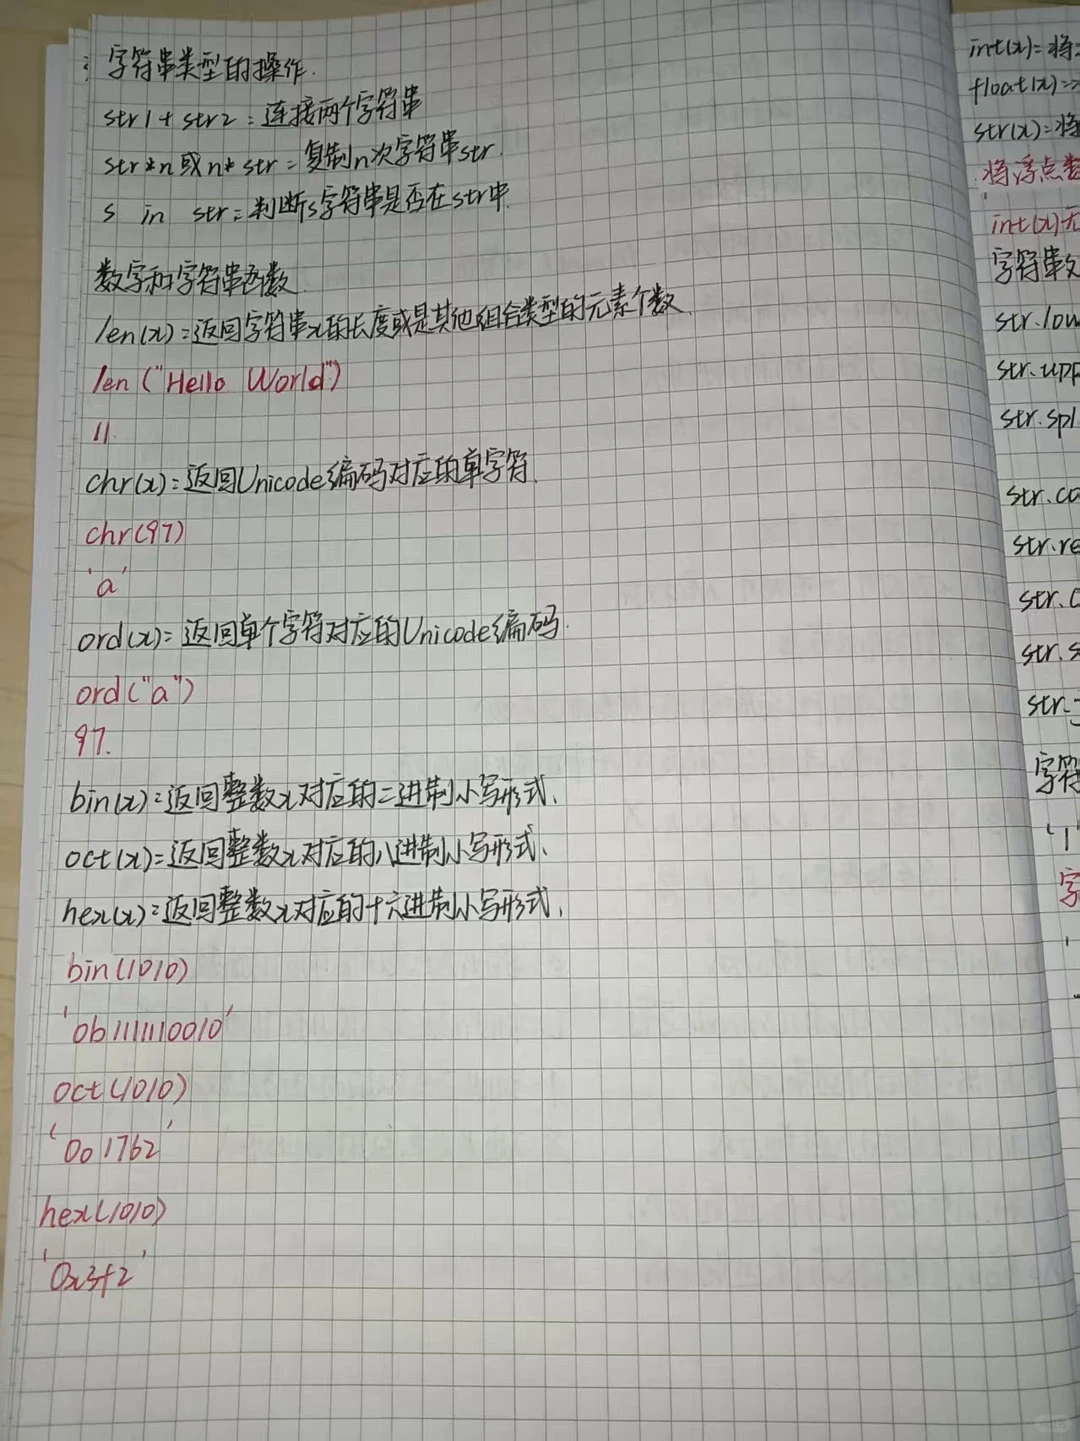 字符串类型的操作.
str1 + str2 = 连接两个字符串
str*n 或 n* str = 复制n次字符串str.
s in str = 判断s字符串是否在str中.
数字和字符串函数.
len(x) = 返回字符串x的长度或是其他组合类型的元素个数.
len ("Hello World")
11.
chr(x) = 返回Unicode编码对应的单字符.
chr(97)
'a'
ord(x) = 返回单个字符对应的Unicode编码.
ord("a")
97.
bin(x) = 返回整数x对应的二进制小写形式、
oct(x) = 返回整数x对应的八进制小写形式、
hex(x) = 返回整数x对应的十六进制小写形式、
bin(1010)
'0b1111110010'
oct(1010)
'0o1762'
hex(1010)
'0x3f2'
int(x) = 将
float(x) =
str(x) = 将
将浮点数
int(x)无
字符串
str.low
str.upp
str.spl
str.co
str.re
str.c
str.s
str.
字符
字